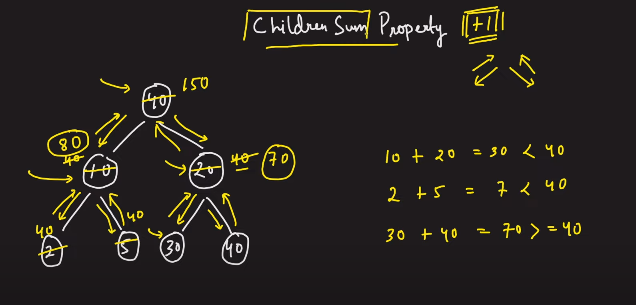 Children Sum Property |+1|
40 150
80
40
10 20 40 70
40 40
2 5 30 40
10 + 20 = 30 < 40
2 + 5 = 7 < 40
30 + 40 = 70 > = 40